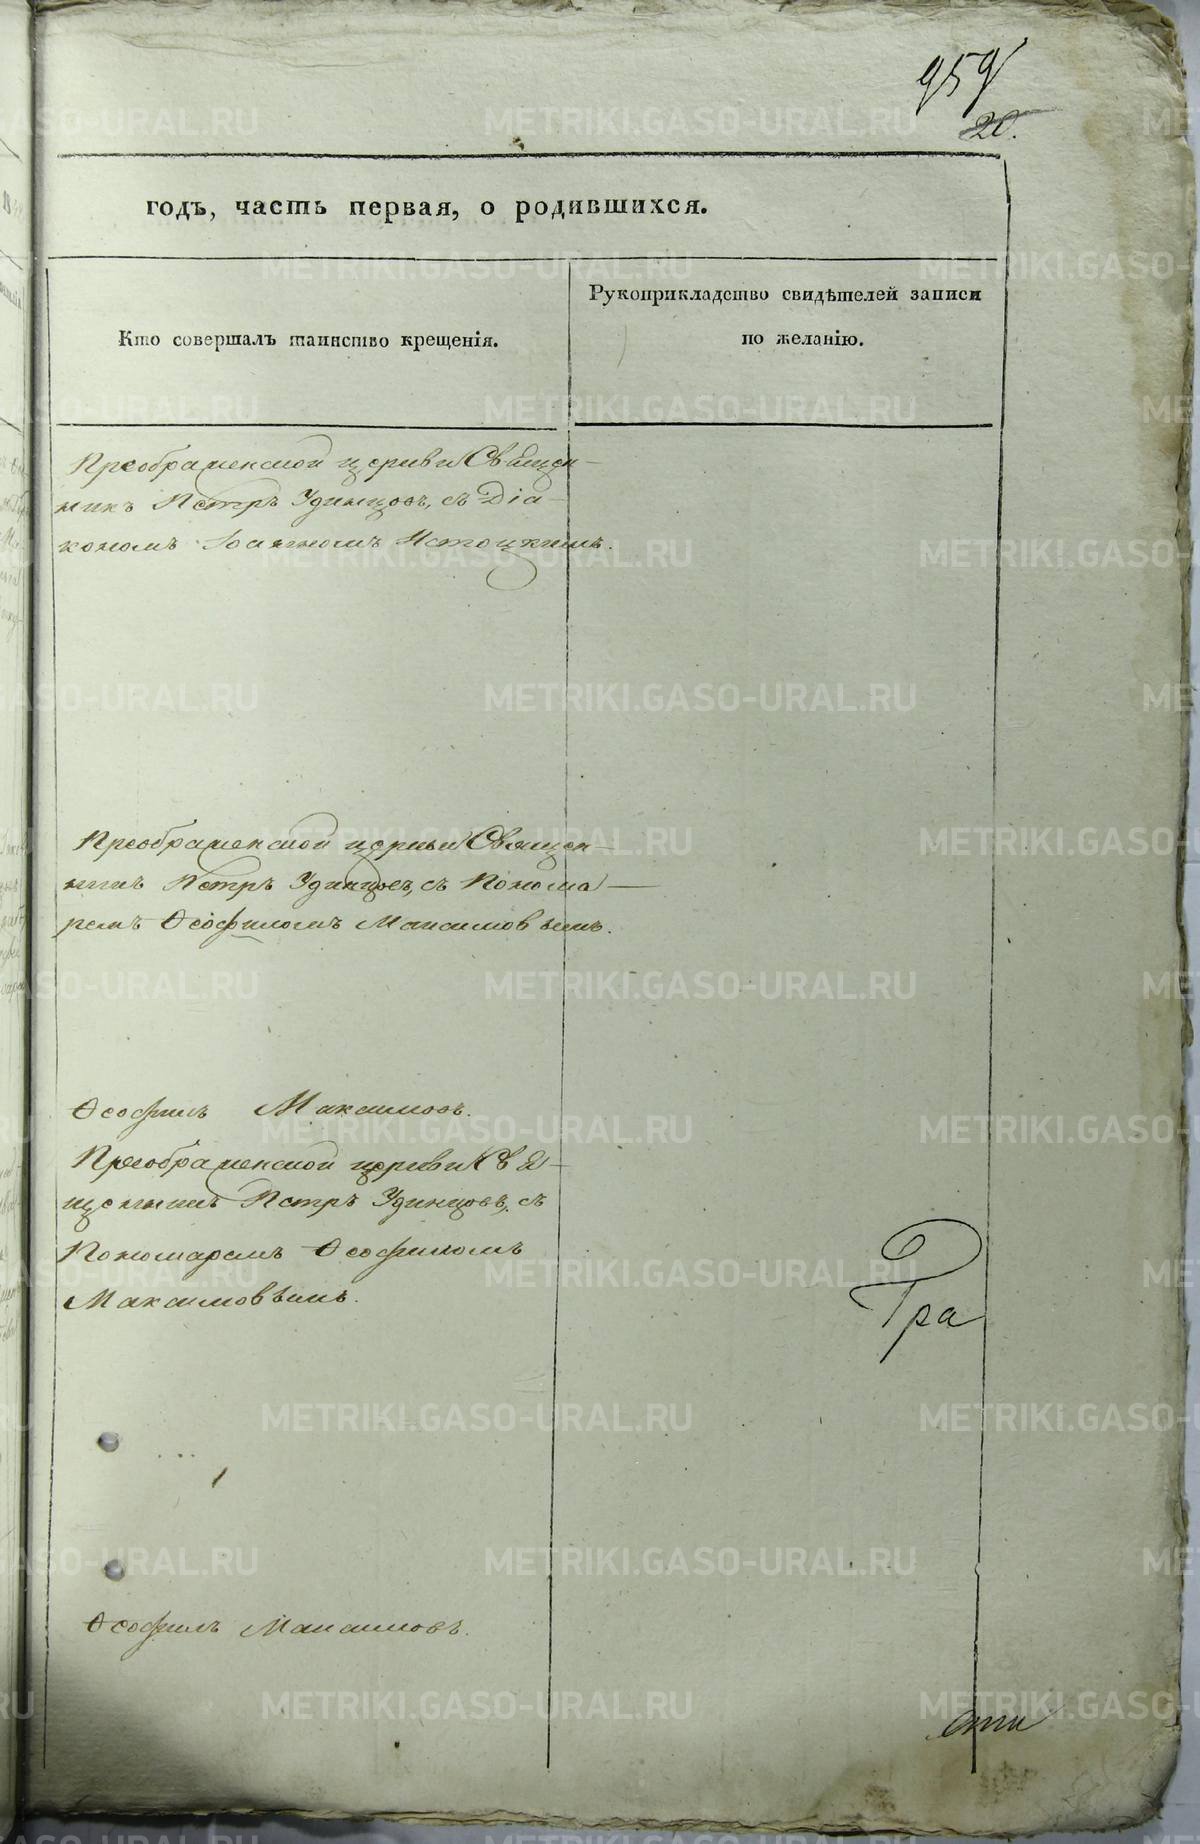 959
20.
годъ, часть первая, о родившихся.
Кто совершалъ таинство крещенія.
Рукоприкладство свидѣтелей записи
по желанію.
Преображенской церкви Священ-
никъ Петръ Удинцовъ, съ Діа-
кономъ Іоанномъ Истоцкимъ.
Преображенской церкви Священ-
никъ Петръ Удинцовъ, съ Понома-
ремъ Ѳеофиломъ Максимовымъ.
Ѳеофилъ Максимовъ.
Преображенской церкви Свя-
щенникъ Петръ Удинцовъ, съ
Пономаремъ Ѳеофиломъ
Максимовымъ.
Гра
Ѳеофилъ Максимовъ.
METRIKI.GASO-URAL.RU